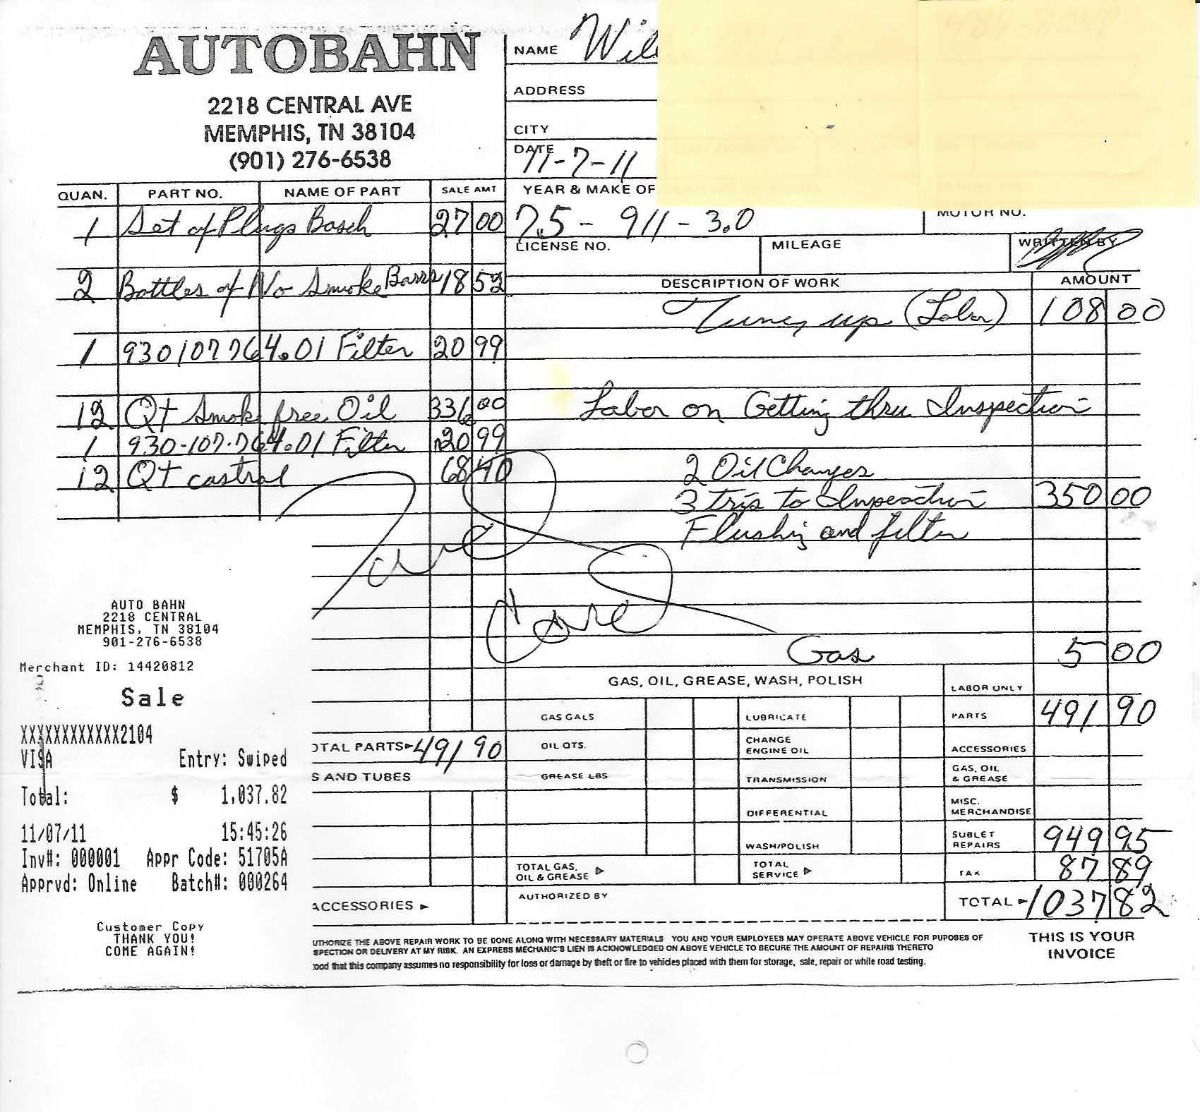 AUTOBAHN
2218 CENTRAL AVE
MEMPHIS, TN 38104
(901) 276-6538
NAME Wil
ADDRESS
CITY
DATE 11-7-11
YEAR & MAKE OF
75 - 911 - 3.0
MOTOR NO.
LICENSE NO. MILEAGE WRITTEN BY
QUAN. PART NO. NAME OF PART SALE AMT
1 Set of Plugs Bosch 27 00
2 Bottles of No Smoke Bars 18 52
1 930 107 764.01 Filter 20 99
12 Qt Smoke free Oil 336 00
1 930-107-764.01 Filter 20 99
12 QT castral 68 40
DESCRIPTION OF WORK AMOUNT
Tuney up (Labor) 108 00
Labor on Getting thru Inspection
2 Oil Changes
3 trip to Inspection 350 00
Flushing and filter
Save
Core
Gas 5 00
AUTO BAHN
2218 CENTRAL
MEMPHIS, TN 38104
901-276-6538
Merchant ID: 14420812
Sale
XXXXXXXXXXXX2104
VISA Entry: Swiped
Total: $ 1,037.82
11/07/11 15:45:26
Inv#: 000001 Appr Code: 51705A
Apprvd: Online Batch#: 000264
Customer Copy
THANK YOU!
COME AGAIN!
OTAL PARTS 491 90
S AND TUBES
ACCESSORIES
GAS, OIL, GREASE, WASH, POLISH
GAS GALS LUBRICATE
OIL QTS. CHANGE ENGINE OIL
GREASE LBS TRANSMISSION
DIFFERENTIAL
WASH/POLISH
TOTAL GAS, OIL & GREASE TOTAL SERVICE
AUTHORIZED BY
LABOR ONLY
PARTS 491 90
ACCESSORIES
GAS, OIL & GREASE
MISC. MERCHANDISE
SUBLET REPAIRS 949 95
TAX 87 89
TOTAL 1037 82
UTHORIZE THE ABOVE REPAIR WORK TO BE DONE ALONG WITH NECESSARY MATERIALS YOU AND YOUR EMPLOYEES MAY OPERATE ABOVE VEHICLE FOR PUPOSES OF
SPECTION OR DELIVERY AT MY RISK. AN EXPRESS MECHANIC'S LIEN IS ACKNOWLEDGED ON ABOVE VEHICLE TO SECURE THE AMOUNT OF REPAIRS THERETO
ood that this company assumes no responsibility for loss or damage by theft or fire to vehicles placed with them for storage, sale, repair or while road testing.
THIS IS YOUR
INVOICE